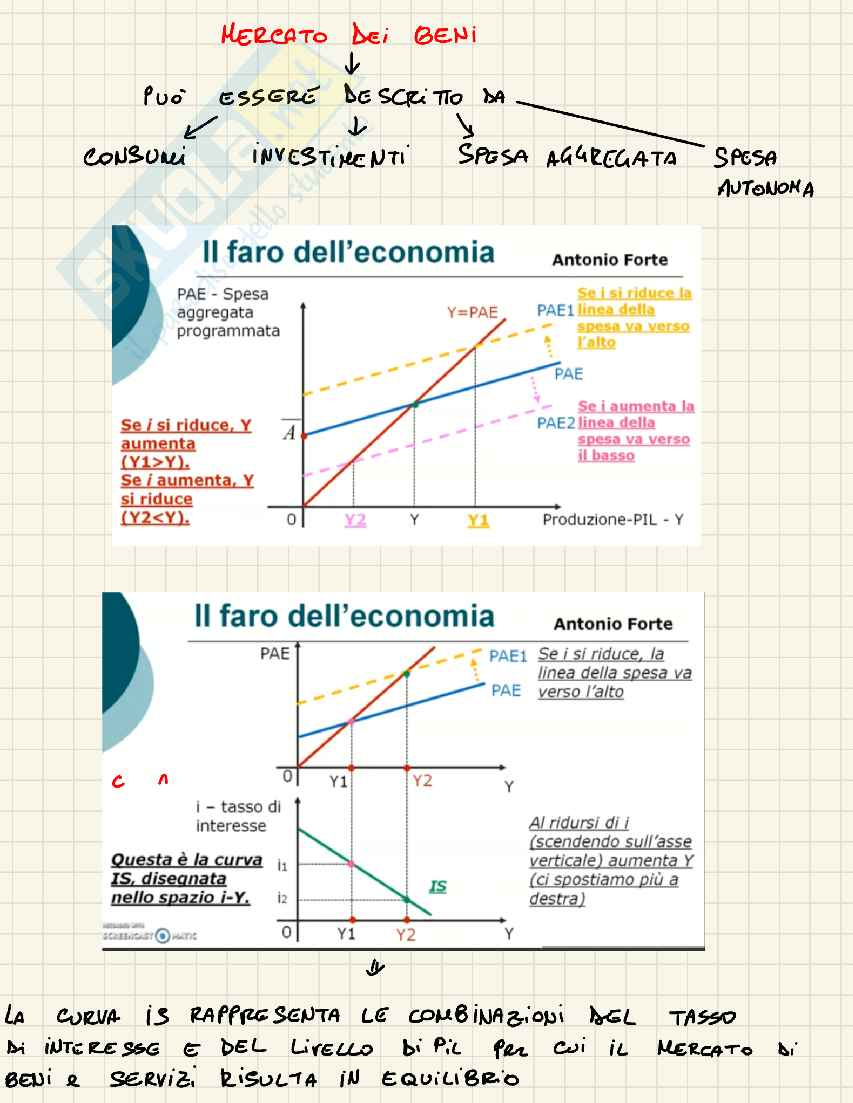 MERCATO DEI BENI
PUÒ ESSERE DESCRITTO DA
CONSUMI INVESTIMENTI SPESA AGGREGATA SPESA
AUTONOMA
SKUOLA.net
Il faro dell'economia
Antonio Forte
PAE - Spesa
aggregata
programmata
Y=PAE
PAE1
Se i si riduce la
linea della
spesa va verso
l'alto
PAE
Se i aumenta la
linea della
spesa va verso
il basso
PAE2
A
Se i si riduce, Y
aumenta
(Y1>Y).
Se i aumenta, Y
si riduce
(Y2<Y).
0 Y2 Y Y1 Produzione-PIL - Y
Il faro dell'economia
Antonio Forte
PAE
PAE1
PAE
Se i si riduce, la
linea della spesa va
verso l'alto
0 Y1 Y2 Y
C n
i – tasso di
interesse
Questa è la curva
IS, disegnata
nello spazio i-Y.
i1
i2
IS
Al ridursi di i
(scendendo sull'asse
verticale) aumenta Y
(ci spostiamo più a
destra)
0 Y1 Y2 Y
SCREENCAST MATIC
LA CURVA IS RAPPRESENTA LE COMBINAZIONI DEL TASSO
DI INTERESSE E DEL LIVELLO DI PIL PER CUI IL MERCATO DI
BENI e SERVIZI RISULTA IN EQUILIBRIO